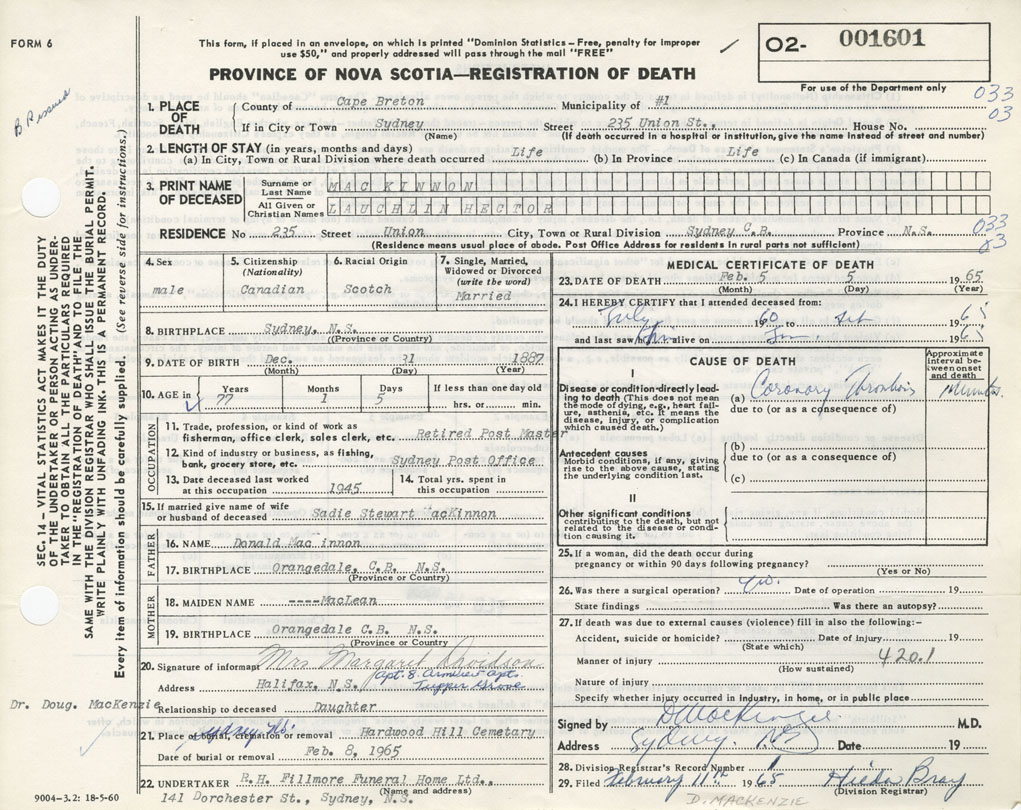 FORM 6
This form, if placed in an envelope, on which is printed "Dominion Statistics – Free, penalty for improper
use $50," and properly addressed will pass through the mail "FREE"
PROVINCE OF NOVA SCOTIA—REGISTRATION OF DEATH
02- 001601
For use of the Department only
033
03
B Rissued
SEC. 14 – VITAL STATISTICS ACT MAKES IT THE DUTY
OF THE UNDERTAKER OR PERSON ACTING AS UNDER-
TAKER TO OBTAIN ALL THE PARTICULARS REQUIRED
IN THE "REGISTRATION OF DEATH" AND TO FILE THE
SAME WITH THE DIVISION REGISTRAR WHO SHALL ISSUE THE BURIAL PERMIT.
WRITE PLAINLY WITH UNFADING INK. THIS IS A PERMANENT RECORD.
Every item of information should be carefully supplied. (See reverse side for instructions.)
1. PLACE OF DEATH
County of Cape Breton Municipality of #1
If in City or Town Sydney Street 235 Union St., House No.
(Name) (If death occurred in a hospital or institution, give the name instead of street and number)
2. LENGTH OF STAY (in years, months and days)
(a) In City, Town or Rural Division where death occurred Life (b) In Province Life (c) In Canada (if immigrant)
3. PRINT NAME OF DECEASED
Surname or Last Name MAC KINNON
All Given or Christian Names LAUCHLIN HECTOR
RESIDENCE No 235 Street Union City, Town or Rural Division Sydney C.B. Province N.S.
033
03
(Residence means usual place of abode. Post Office Address for residents in rural parts not sufficient)
4. Sex male
5. Citizenship (Nationality) Canadian
6. Racial Origin Scotch
7. Single, Married, Widowed or Divorced (write the word) Married
8. BIRTHPLACE Sydney, N.S.
(Province or Country)
9. DATE OF BIRTH Dec. 31 1887
(Month) (Day) (Year)
10. AGE in Years 77 Months 1 Days 5 If less than one day old hrs. or min.
OCCUPATION
11. Trade, profession, or kind of work as
fisherman, office clerk, sales clerk, etc. Retired Post Master
12. Kind of industry or business, as fishing,
bank, grocery store, etc. Sydney Post Office
13. Date deceased last worked at this occupation 1945
14. Total yrs. spent in this occupation
15. If married give name of wife
or husband of deceased Sadie Stewart acKinnon
FATHER
16. NAME Donald Mac innon
17. BIRTHPLACE Orangedale, C.B. N.S.
(Province or Country)
MOTHER
18. MAIDEN NAME ----MacLean
19. BIRTHPLACE Orangedale C.B. N.S.
(Province or Country)
20. Signature of informant Mrs Margaret Davidson
Apt. 8.
Address Halifax, N.S. Tupper Grove
Dr. Doug. MacKenzie
Relationship to deceased Daughter
Sydney NS.
21. Place of burial, cremation or removal Hardwood Hill Cemetary
Date of burial or removal Feb. 8, 1965
22. UNDERTAKER R.H. Fillmore Funeral Home Ltd.,
(Name and address)
141 Dorchester St., Sydney, N.S.
9004-3.2: 18-5-60
MEDICAL CERTIFICATE OF DEATH
23. DATE OF DEATH Feb. 5 5 1965
(Month) (Day) (Year)
24. I HEREBY CERTIFY that I attended deceased from:
July 1960 to 1965
and last saw him alive on Jan. 1965
CAUSE OF DEATH
Approximate interval between onset and death
I
Disease or condition directly leading to death (This does not mean the mode of dying, e.g., heart failure, asthenia, etc. It means the disease, injury, or complication which caused death.)
(a) Coronary Thrombosis Minutes.
due to (or as a consequence of)
Antecedent causes
Morbid conditions, if any, giving rise to the above cause, stating the underlying condition last.
(b)
due to (or as a consequence of)
(c)
II
Other significant conditions
contributing to the death, but not related to the disease or condition causing it.
25. If a woman, did the death occur during
pregnancy or within 90 days following pregnancy?
(Yes or No)
26. Was there a surgical operation? no. Date of operation 19
State findings Was there an autopsy?
27. If death was due to external causes (violence) fill in also the following:-
Accident, suicide or homicide? Date of injury 19
(State which)
Manner of injury 420.1
(How sustained)
Nature of injury
Specify whether injury occurred in industry, in home, or in public place
Signed by D MacKenzie. M.D.
Address Sydney. NS Date 19
28. Division Registrar's Record Number
29. Filed February 11th 1965 Hilda Bray
(Division Registrar)
D. MACKENZIE